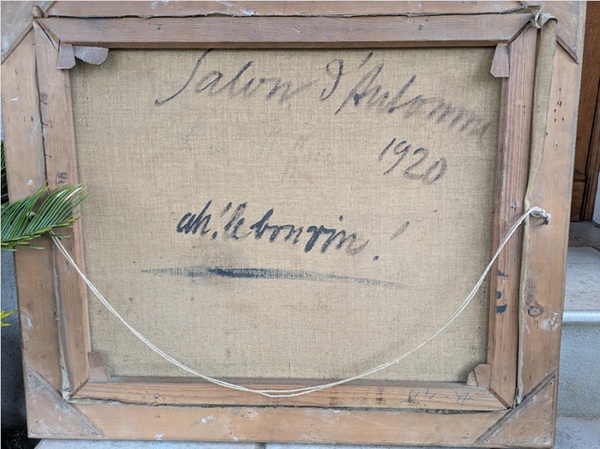 Salon d'Automne
1920
ah! le bon vin!